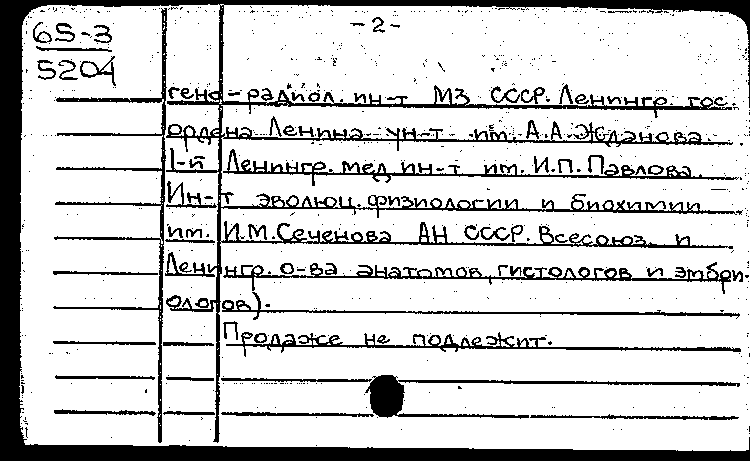 65-3
5204
- 2 -
гено-радиол. ин-т МЗ СССР. Ленингр. гос.
ордена Ленина ун-т им. А.А. Жданова.
1-й Ленингр. мед. ин-т им. И.П. Павлова.
Ин-т эволюц. физиологии и биохимии
им. И.М. Сеченова АН СССР. Всесоюз. и
Ленингр. о-ва анатомов, гистологов и эмбри-
ологов).
Продаже не подлежит.